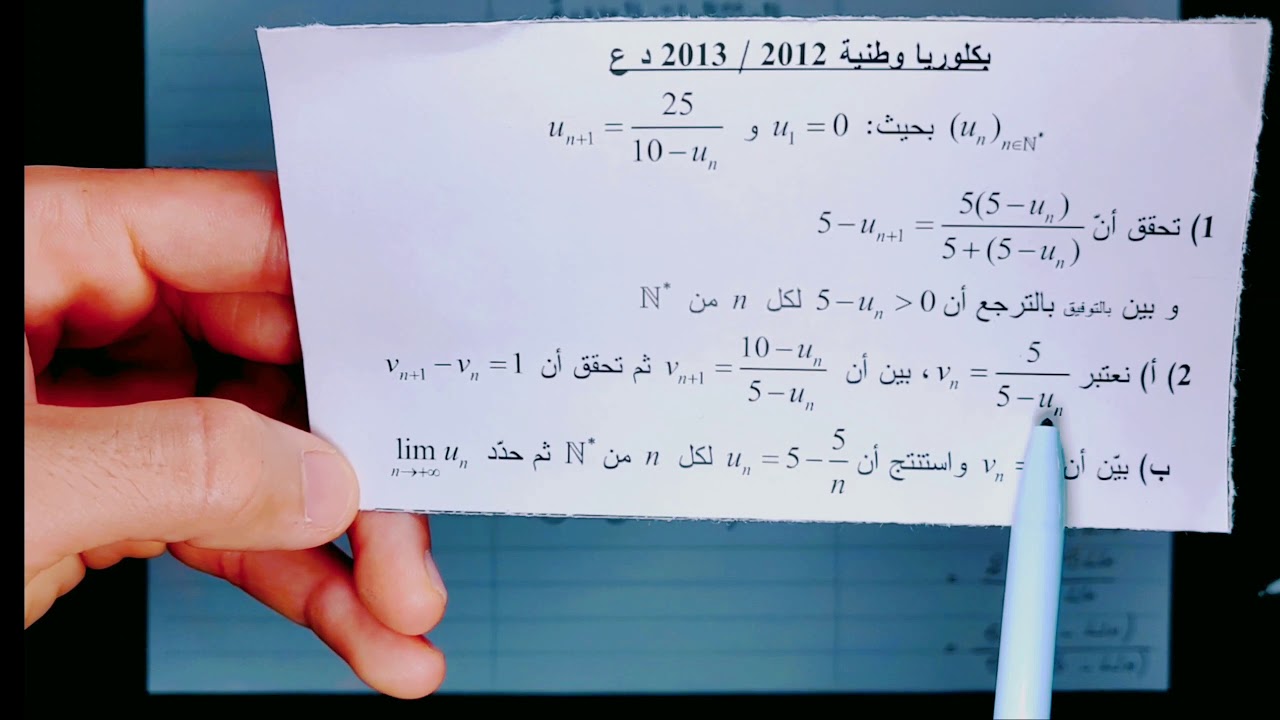 بكلوريا وطنية 2012 / 2013 د ع
(u_n)_{n∈ℕ*} بحيث: u_1 = 0 و u_{n+1} = 25/(10 − u_n)
1) تحقق أنّ 5 − u_{n+1} = 5(5 − u_n)/(5 + (5 − u_n))
و بين بالتوفيق بالترجع أن 5 − u_n > 0 لكل n من ℕ*
2) أ) نعتبر v_n = 5/(5 − u_n) ، بين أن v_{n+1} = (10 − u_n)/(5 − u_n) ثم تحقق أن v_{n+1} − v_n = 1
ب) بيّن أن v_n = واستنتج أن u_n = 5 − 5/n لكل n من ℕ* ثم حدّد lim_{n→+∞} u_n